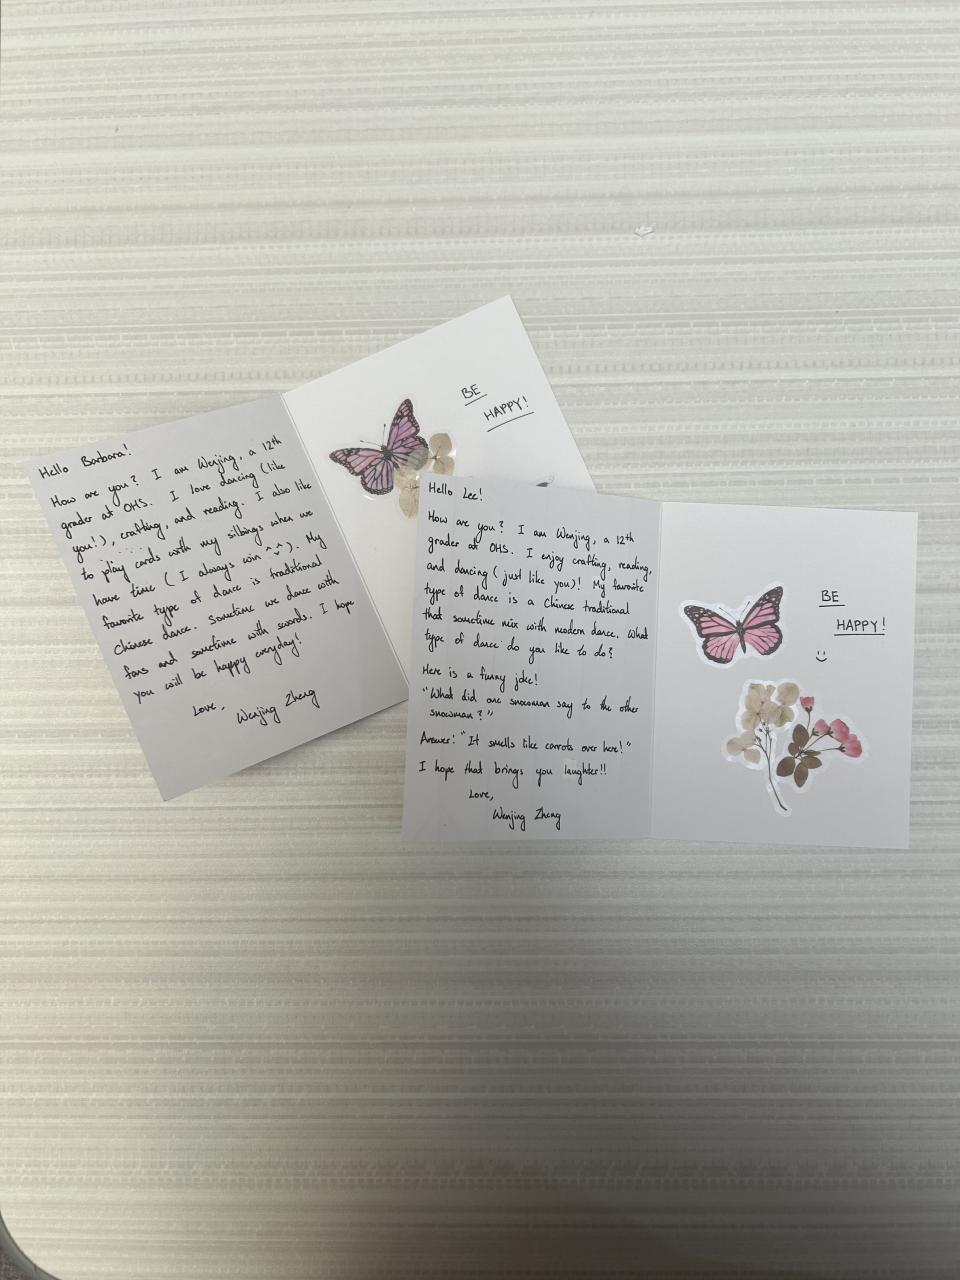 Hello Barbara!
How are you? I am Wenjing, a 12th
grader at OHS. I love dancing (like
you!), crafting, and reading. I also like
to play cards with my silbings when we
have time (I always win ^ᵕ^). My
favorite type of dance is traditional
Chinese dance. Sometime we dance with
fans and sometime with swords. I hope
you will be happy everyday!
Love,
Wenjing Zheng
BE
HAPPY!
Hello Lee!
How are you? I am Wenjing, a 12th
grader at OHS. I enjoy crafting, reading,
and dancing (just like you)! My favorite
type of dance is a Chinese traditional
that sometime mix with modern dance. What
type of dance do you like to do?
Here is a funny joke!
"What did one snowman say to the other
snowman?"
Answer: "It smells like carrots over here!"
I hope that brings you laughter!!
Love,
Wenjing Zheng
BE
HAPPY!